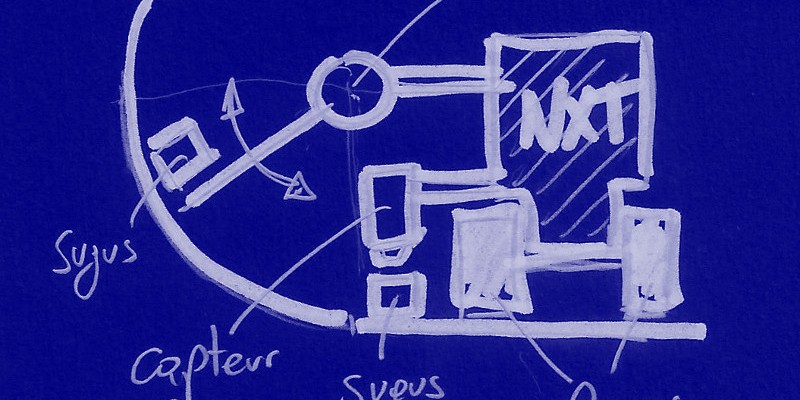 NXT
Sugus
Capteur
Sugus